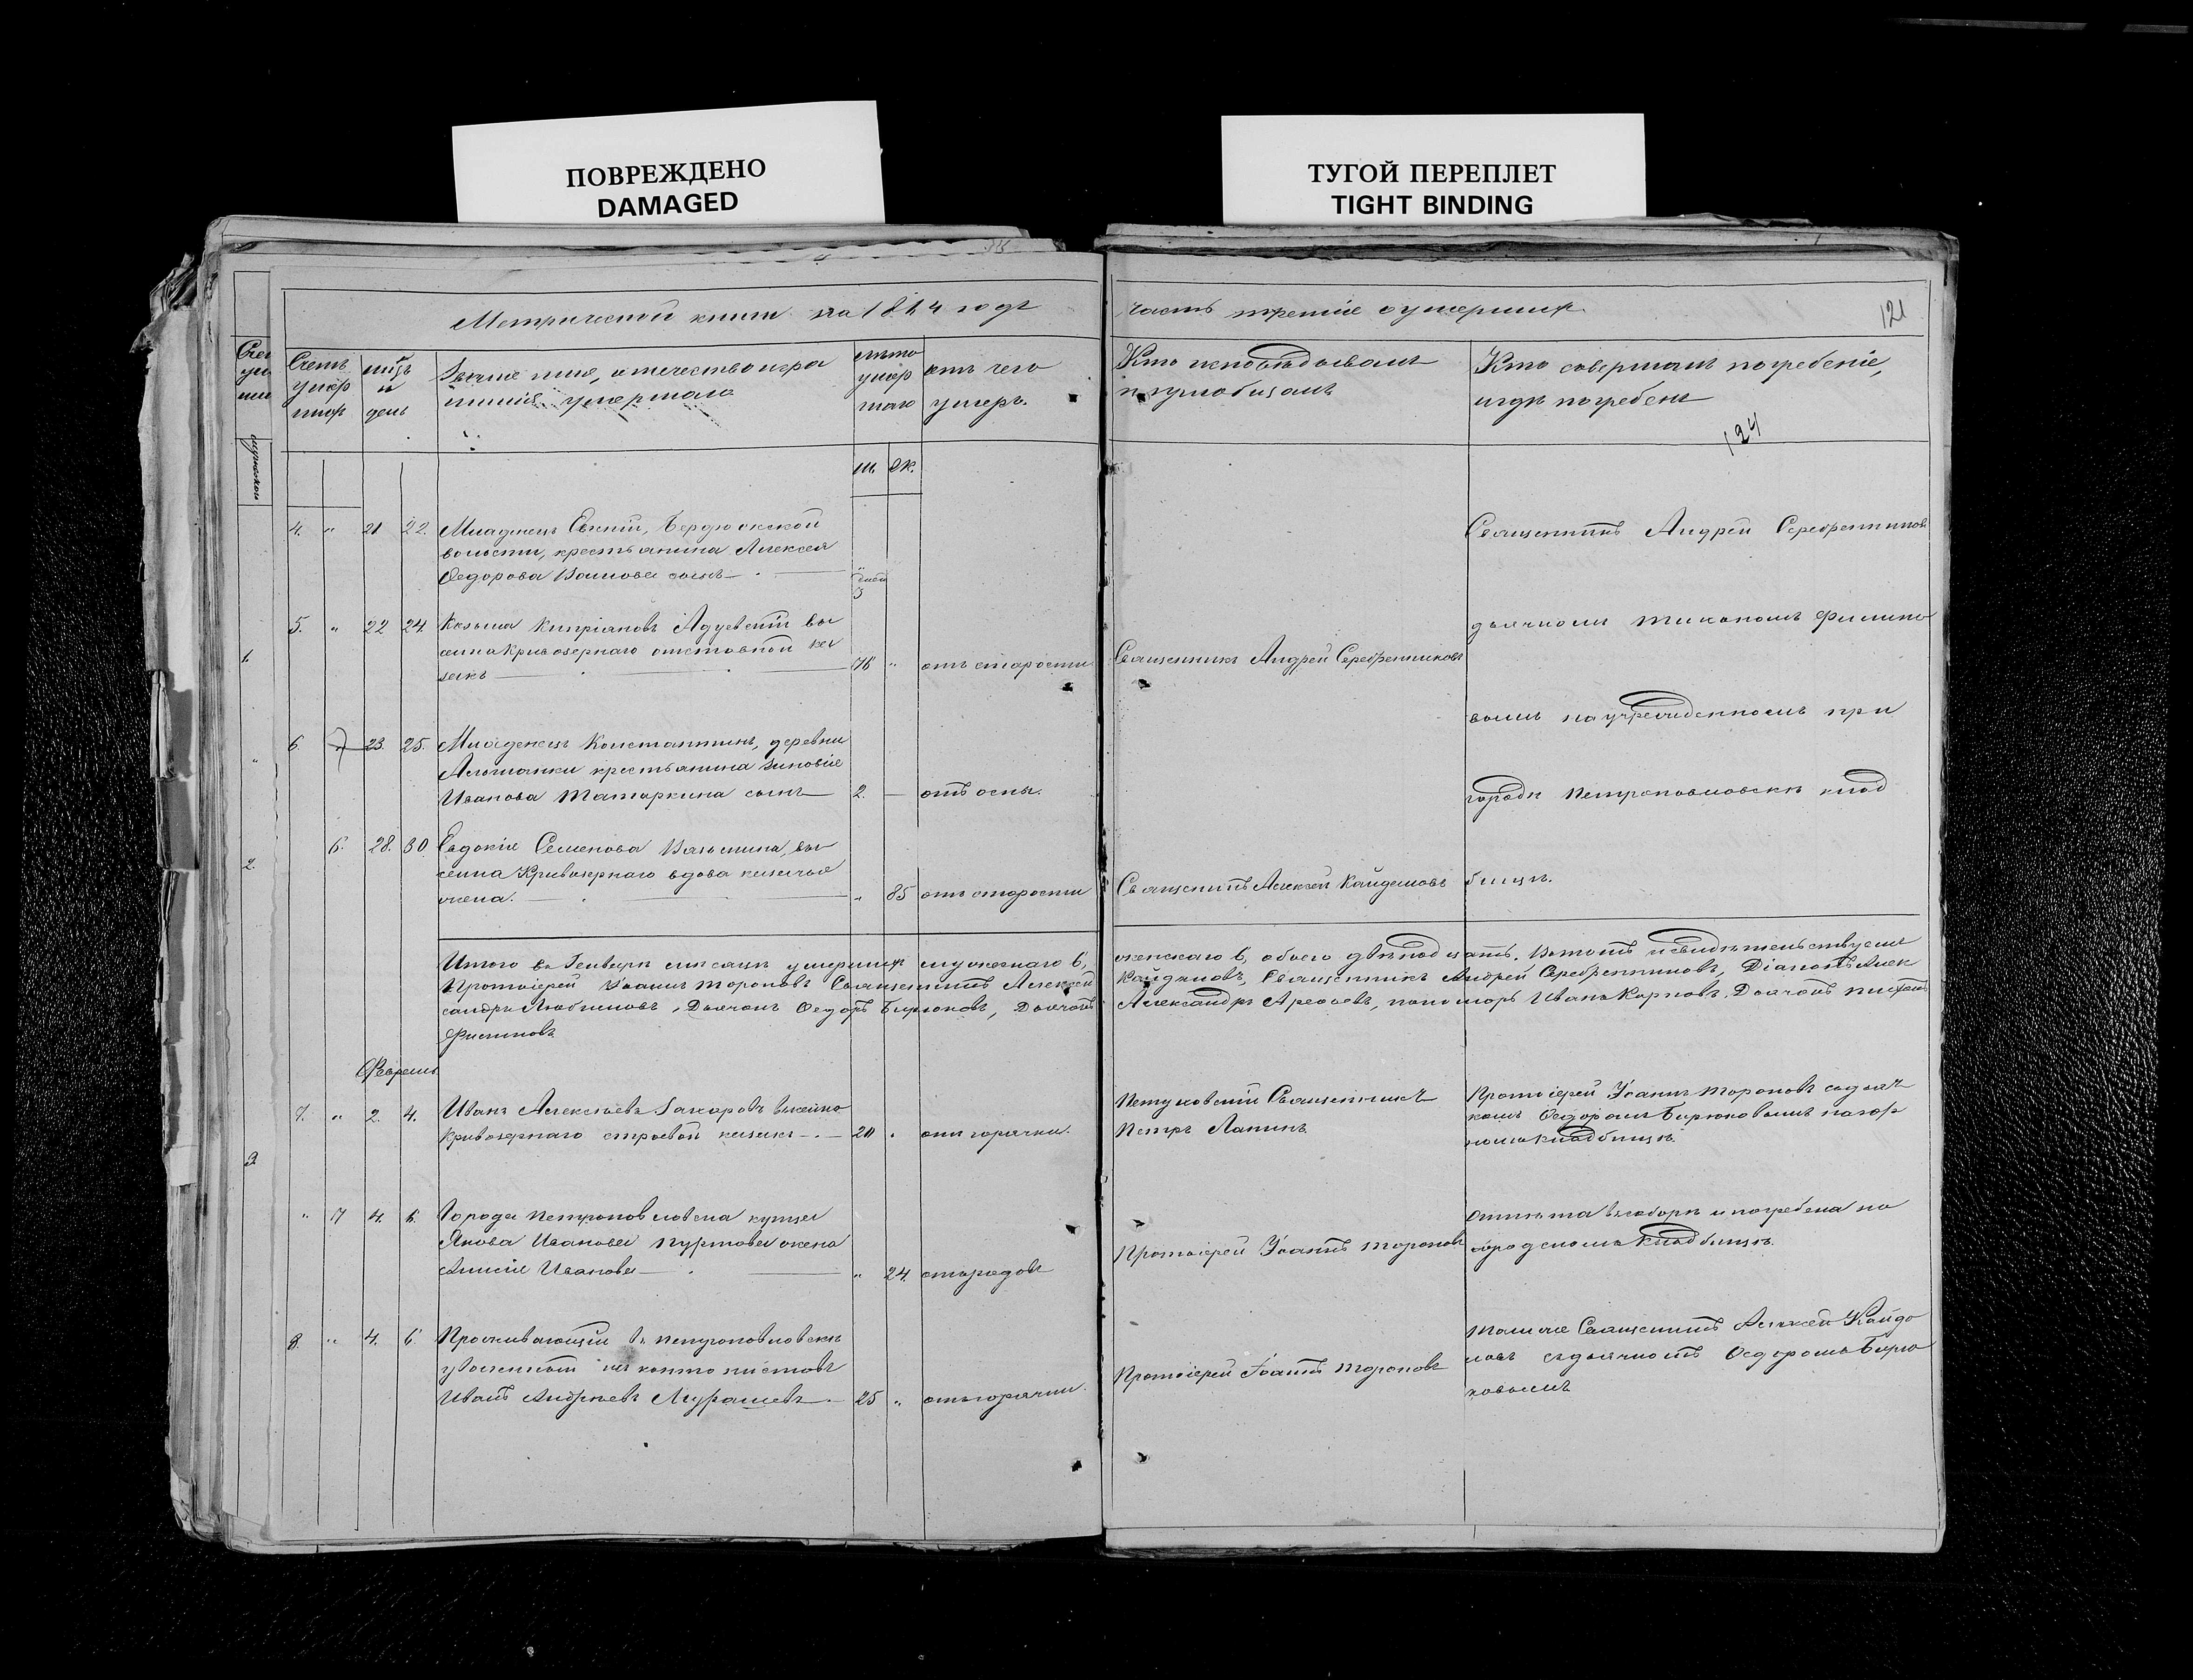 ПОВРЕЖДЕНО
DAMAGED
ТУГОЙ ПЕРЕПЛЕТ
TIGHT BINDING
Метрической книги на 18 4 годъ
часть третія о умершихъ
121
Счетъ умер шихъ
мѣсяцъ и день
Званіе имя, отечество и фамилія умершаго
лѣта умер шаго
отъ чего умеръ.
Кто исповѣдывалъ и пріобщалъ
Кто совершалъ погребеніе, и гдѣ погребенъ
124
м. ж.
4. " 21 22. Младенецъ
волости, крестьянина Алексея
Федорова сынъ
дней
3
Священникъ Андрей Серебренниковъ
5. " 22 24. Козьма Кипріяновъ вы
селка Кривозернаго отставной ка
закъ 76 " отъ старости
Священникъ Андрей Серебренниковъ
дьячкомъ Тихономъ Филипо
вымъ на учрежденномъ при
6. 23. 25. Младенецъ Константинъ, деревни
крестьянина Зиновія
Иванова Татаркина сынъ 2. — отъ оспы.
городѣ Петропавловскѣ клад
6. 28. 30. Евдокія Семенова вы
селка Кривозернаго вдова казачья
жена. " 85 отъ старости
Священникъ Алексей Кайдаловъ
бищѣ.
Итого въ Генварѣ месяцѣ умершихъ мужескаго 6,
женскаго 6, обоего двѣнадцать. Въ томъ и свидѣтельствуемъ
Протоіерей Іоаннъ Тороповъ Священникъ Алексей
Кайдаловъ, Священникъ Андрей Серебренниковъ, Діаконъ Алек
сандръ Любимовъ, Дьячокъ Федоръ Бирюковъ, Дьячокъ
Александръ Арефьевъ, пономарь Иванъ Карповъ, Дьячокъ
Филиповъ
Февраль
7. " 2. 4. Иванъ Алексѣевъ Захаровъ выселка
Кривозернаго строевой казакъ 20 " отъ горячки.
Петуховскій Священникъ
Петръ Лапинъ
Протоіерей Іоаннъ Тороповъ съ дьяч
комъ Федоромъ Бирюковымъ на гор
номъ кладбищѣ
" 7 4. 6. Города Петропавловска купца
Якова Иванова жена
Анисія Иванова " 24. отъ родовъ
Протоіерей Іоаннъ Тороповъ
отпѣта въ соборѣ и погребена на
городскомъ кладбищѣ.
8. " 4. 6. Проживающій въ Петропавловскѣ
уволенный изъ кантонистовъ
Иванъ Андреевъ Мурашевъ 25 " отъ горячки.
Протоіерей Іоаннъ Тороповъ
тамъ же Священникъ Алексей Кайда
ловъ съ дьячкомъ Федоромъ Бирю
ковымъ